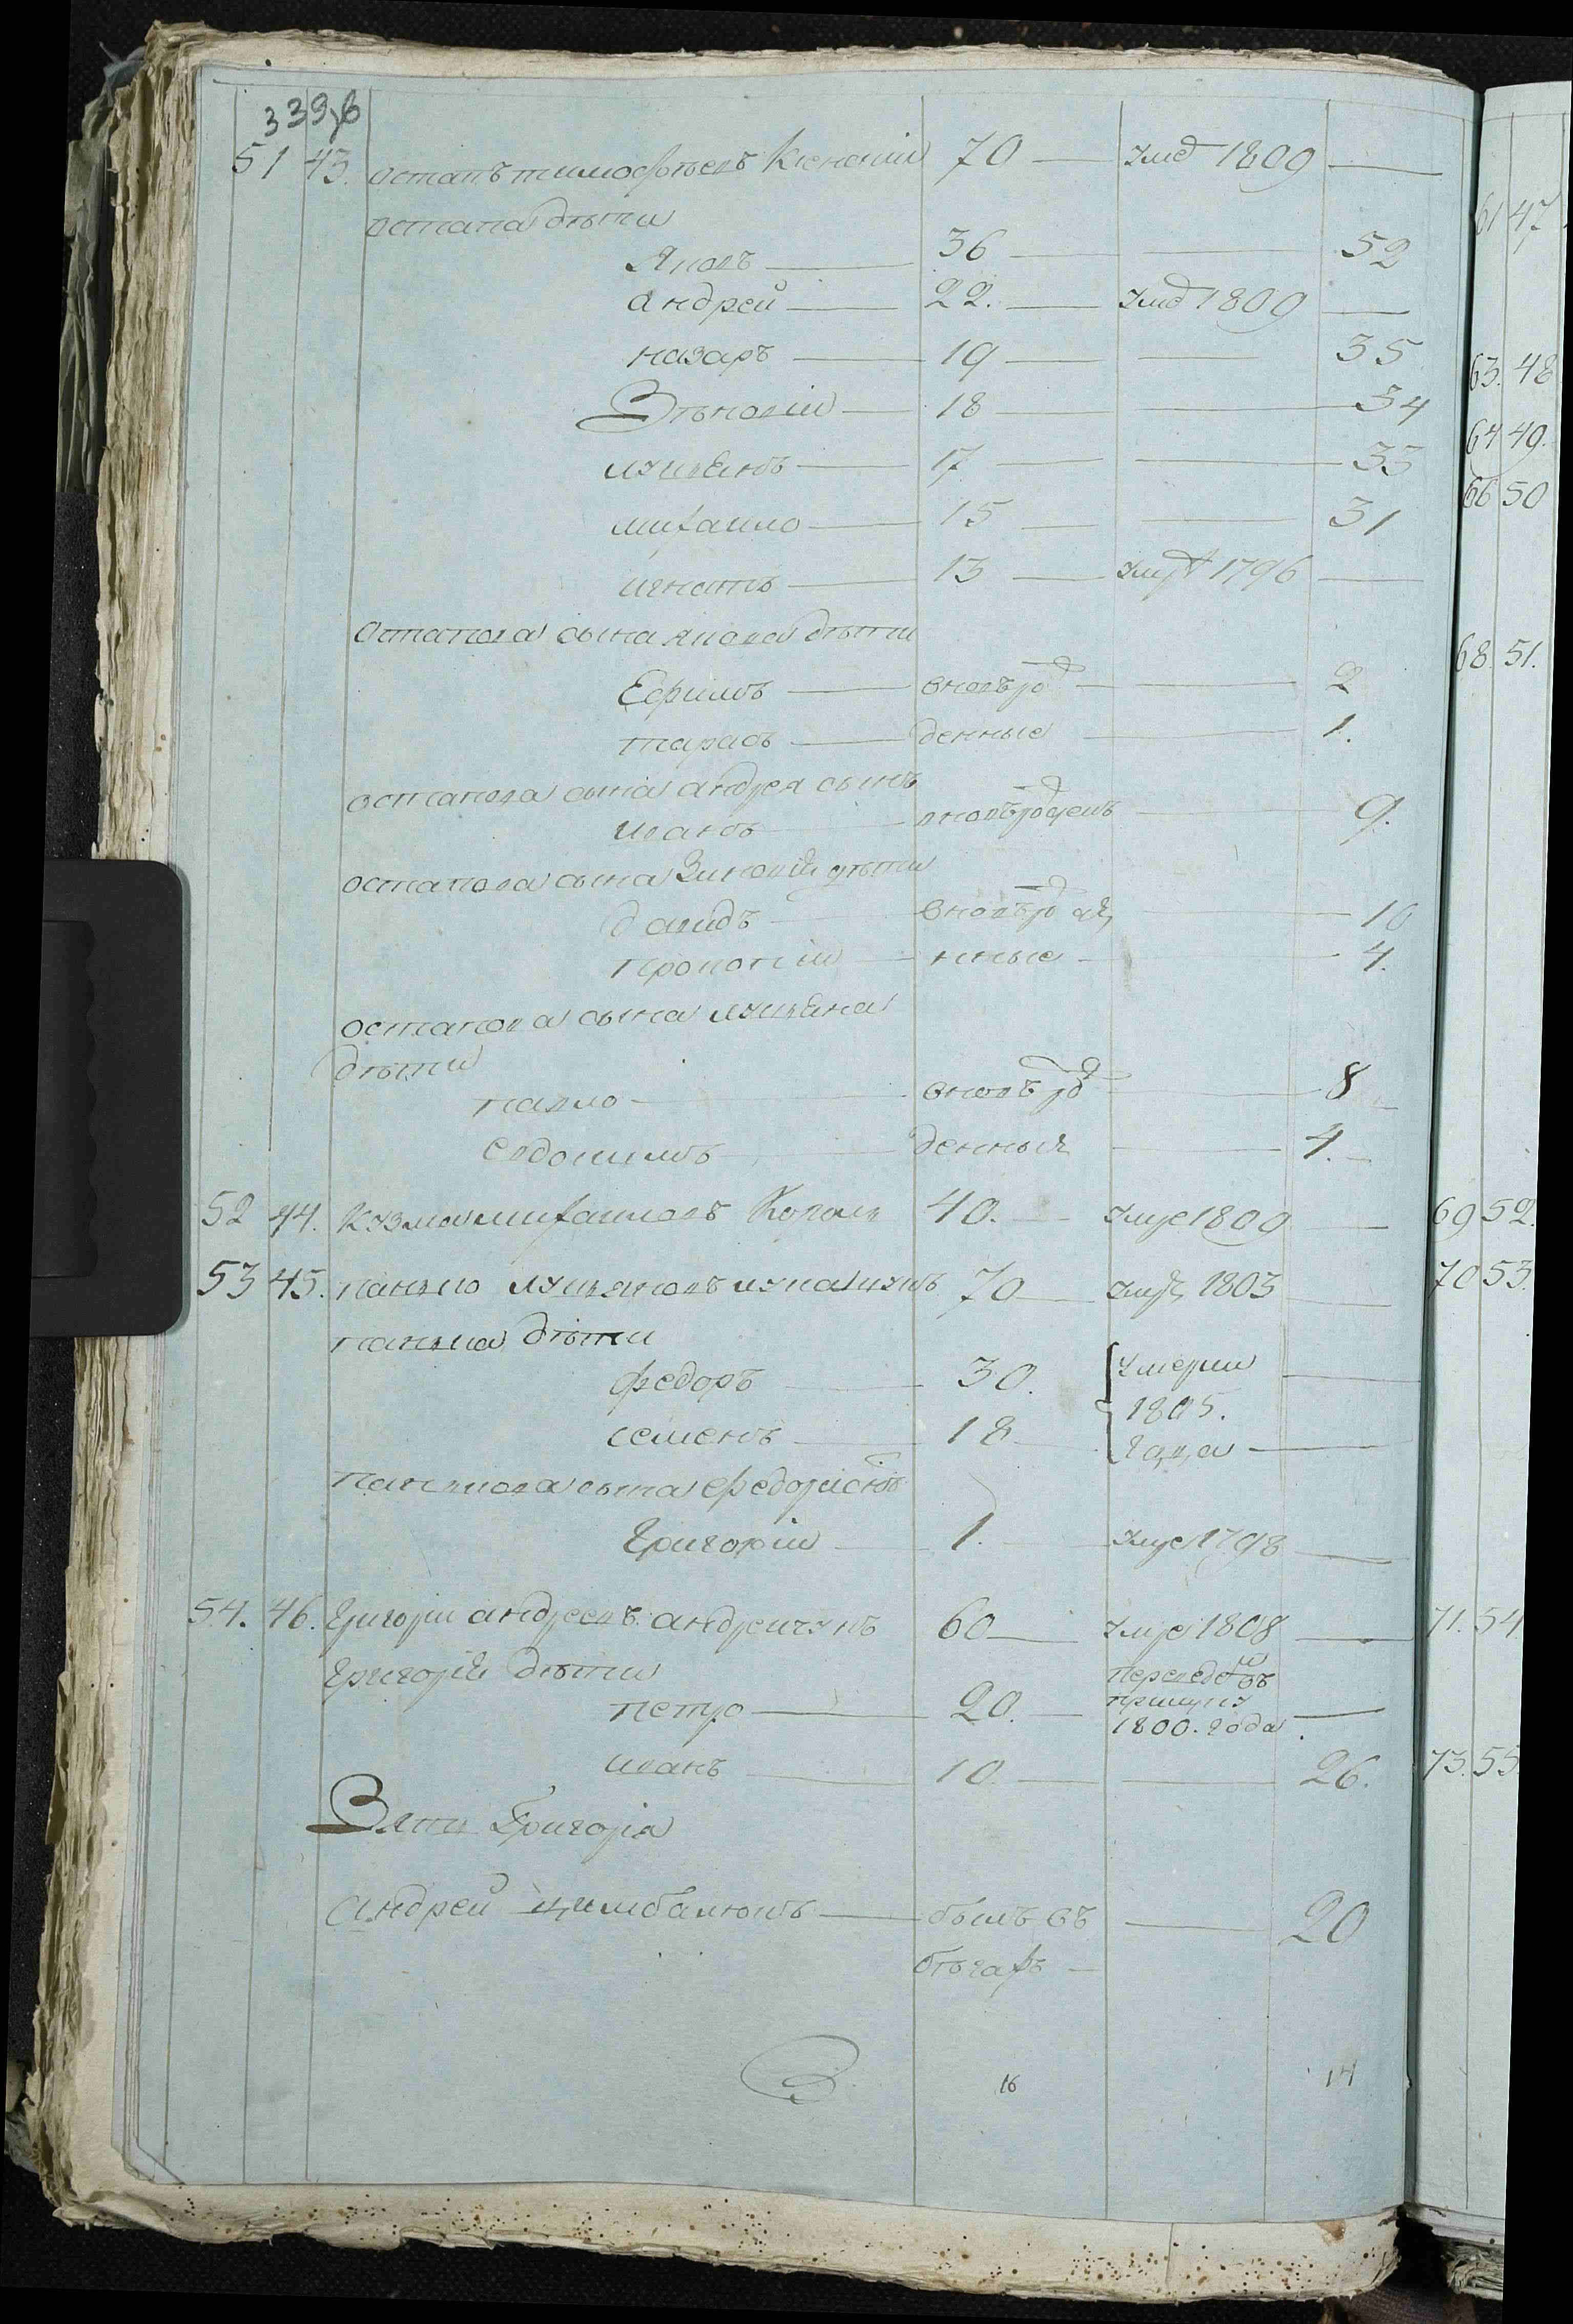 339,б
51 43. остапъ тимофѣевъ 70 — умѣ 1809 —
остапа дѣти
Яковъ — 36 — — 52
андрей — 22. — умѣ 1809 —
назаръ — 19 — — 35
Зѣновіи — 18 — — 34
лукъянъ — 17 — — 33
михаило — 15 — — 31
игнатъ — 13 — умре 1796 —
остапова сына якова дѣти
Ефимъ — вновьро — 2
тарасъ — денные — 1.
остапова сына андрея сынъ
иванъ — вновьрожденъ — 9.
остапова сына Зиновія дѣти
давидъ — вновьрожде — 10
прокопіи — нные — 4.
остапова сына лукъяна
дѣти
павло — вновьро — 8
евдокимъ — денныя — 4.
52 44. кузма михаиловъ Коваль 40. — умре 1809 —
53 45. панько лукьяновъ 70 — умре 1803 —
панька дѣти
федоръ — 30. умерли —
семенъ — 18 1805.
года —
панькова сына федора сынъ
Григоріи — 1. — умре 1798 —
54. 46. Григори андреевъ андреичукъ 60 — умре 1808 —
Григорія дѣти
петро — 20. — переведенъ въ
1800. года —
иванъ — 10. — — 26.
Зять Григорія
андрей цимбалюкъ — былъ въ — 20
бѣгахъ —
16 14
61 47
63. 48
64 49.
66 50
68. 51.
69 52.
70 53.
71. 54
73. 55